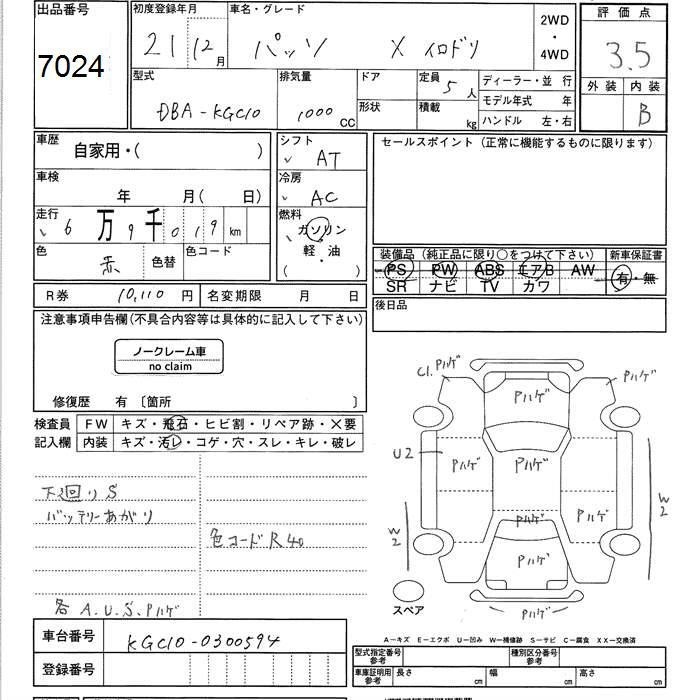 出品番号
7024
初度登録年月
21 12月
車名・グレード
パッソ X イロドリ
2WD
・
4WD
評価点
3.5
外装 内装
B
型式
DBA-KGC10
排気量
1000 CC
ドア
形状
定員 5人
積載 kg
ディーラー・並行
モデル年式 年
ハンドル 左・右
車歴
自家用・( )
車検
年 月( 日)
走行
6万9千019km
色
赤
色替
色コード
シフト
AT
冷房
AC
燃料
ガソリン
軽・油
( )
セールスポイント(正常に機能するものに限ります)
装備品(純正品に限り○をつけて下さい)
新車保証書
PS PW ABS エアB AW
SR ナビ TV カワ
有・無
後日品
R券 10,110円
名変期限 月 日
注意事項申告欄(不具合内容等は具体的に記入して下さい)
ノークレーム車
no claim
修復歴 有〔箇所 〕
検査員
記入欄
FW キズ・飛石・ヒビ割・リペア跡・×要
内装 キズ・汚レ・コゲ・穴・スレ・キレ・破レ
下廻りS
バッテリーあがり
色コードR40
各A.U.S.Pハゲ
C1. Pハゲ
Pハゲ
Pハゲ
U2
Pハゲ
Pハゲ
Pハゲ
Pハゲ
Pハゲ
W2
W2
Pハゲ
スペア
A－キズ E－エクボ U－凹み W－補修跡 S－サビ C－腐食 XX－交換済
車台番号
KGC10-0300594
登録番号
型式指定番号
参考
種別区分番号
参考
車庫証明用
参考
長さ cm
幅 cm
高さ cm